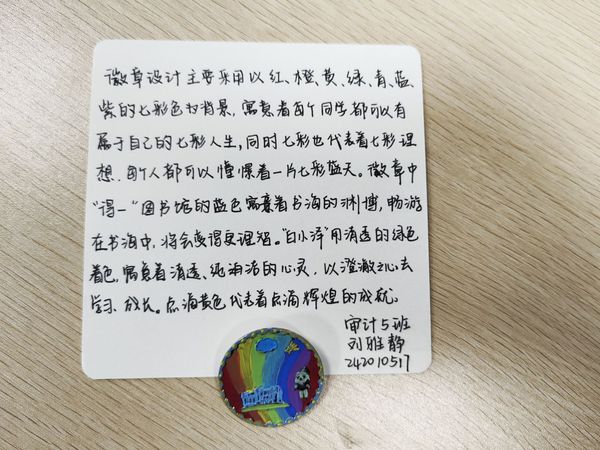 徽章设计主要采用以红、橙、黄、绿、青、蓝、
紫的七彩色为背景，寓意着每个同学都可以有
属于自己的七彩人生，同时七彩也代表着七彩理
想，每个人都可以憧憬着一片七彩蓝天。徽章中
“得一”图书馆的蓝色寓意着书海的渊博，畅游
在书海中，将会变得更理智。“白小泽”用清透的绿色
着色，寓意着清透、纯洁的心灵，以澄澈之心去
学习、成长。点滴黄色代表着点滴辉煌的成就。
审计5班
刘雅静
242010517